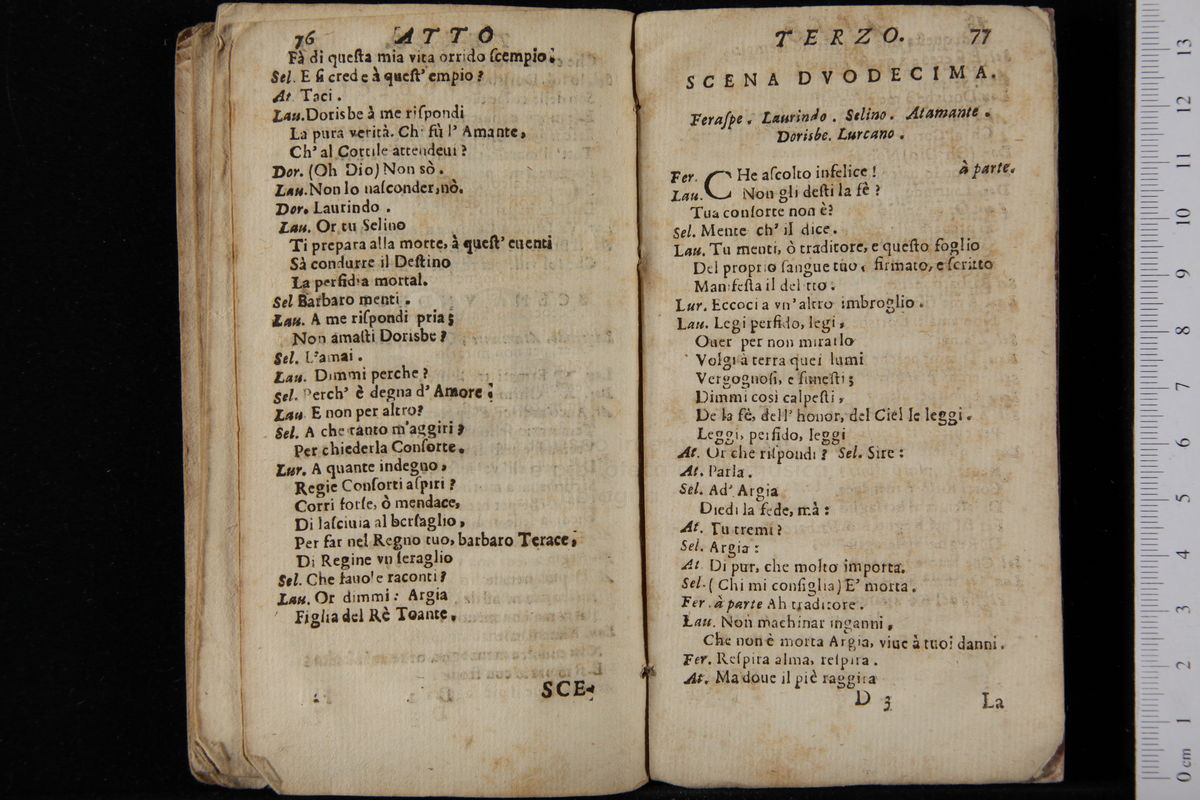 76 ATTO
Fà di queſta mia vita orrido ſcempio.
Sel. E ſi crede à queſt' empio?
At. Taci.
Lau. Dorisbe à me riſpondi
La pura verità. Ch' fù l' Amante,
Ch' al Cortile attendeui?
Dor. (Oh Dio) Non sò.
Lau. Non lo naſconder, nò.
Dor. Laurindo.
Lau. Or tu Selino
Ti prepara alla morte, à queſt' euenti
Sà condurre il Deſtino
La perfidia mortal.
Sel Barbaro menti.
Lau. A me riſpondi pria;
Non amaſti Dorisbe?
Sel. L'amai.
Lau. Dimmi perche?
Sel. Perch' è degna d' Amore:
Lau. E non per altro?
Sel. A che tanto m'aggiri?
Per chiederla Conſorte.
Lur. A quante indegno,
Regie Conſorti aſpiri?
Corri forſe, ò mendace,
Di laſciuia al berſaglio,
Per far nel Regno tuo, barbaro Terace,
Di Regine vn ſeraglio
Sel. Che fauole raconti?
Lau. Or dimmi: Argia
Figlia del Rè Toante,
SCE-
TERZO. 77
SCENA DVODECIMA.
Feraſpe. Laurindo. Selino. Atamante.
Dorisbe. Lurcano.
Fer. CHe aſcolto infelice! à parte.
Lau. Non gli deſti la fè?
Tua conſorte non è?
Sel. Mente ch' il dice.
Lau. Tu menti, ò traditore, e queſto foglio
Del proprio ſangue tuo, firmato, e ſcritto
Manifeſta il delitto.
Lur. Eccoci a vn' altro imbroglio.
Lau. Legi perfido, legi,
Ouer per non mirarlo
Volgi à terra quei lumi
Vergognoſi, e funeſti;
Dimmi così calpeſti,
De la fè, dell' honor, del Ciel le leggi.
Leggi, perfido, leggi
At. Or che riſpondi? Sel. Sire:
At. Parla.
Sel. Ad' Argia
Diedi la fede, mà:
At. Tu tremi?
Sel. Argia:
At. Di pur, che molto importa.
Sel. (Chi mi conſiglia) E' morta.
Fer. à parte Ah traditore.
Lau. Non machinar inganni,
Che non è morta Argia, viue à tuoi danni.
Fer. Reſpira alma, reſpira.
At. Ma doue il piè raggira
D 3 La
13
12
11
10
9
8
7
6
5
4
3
2
1
0 cm